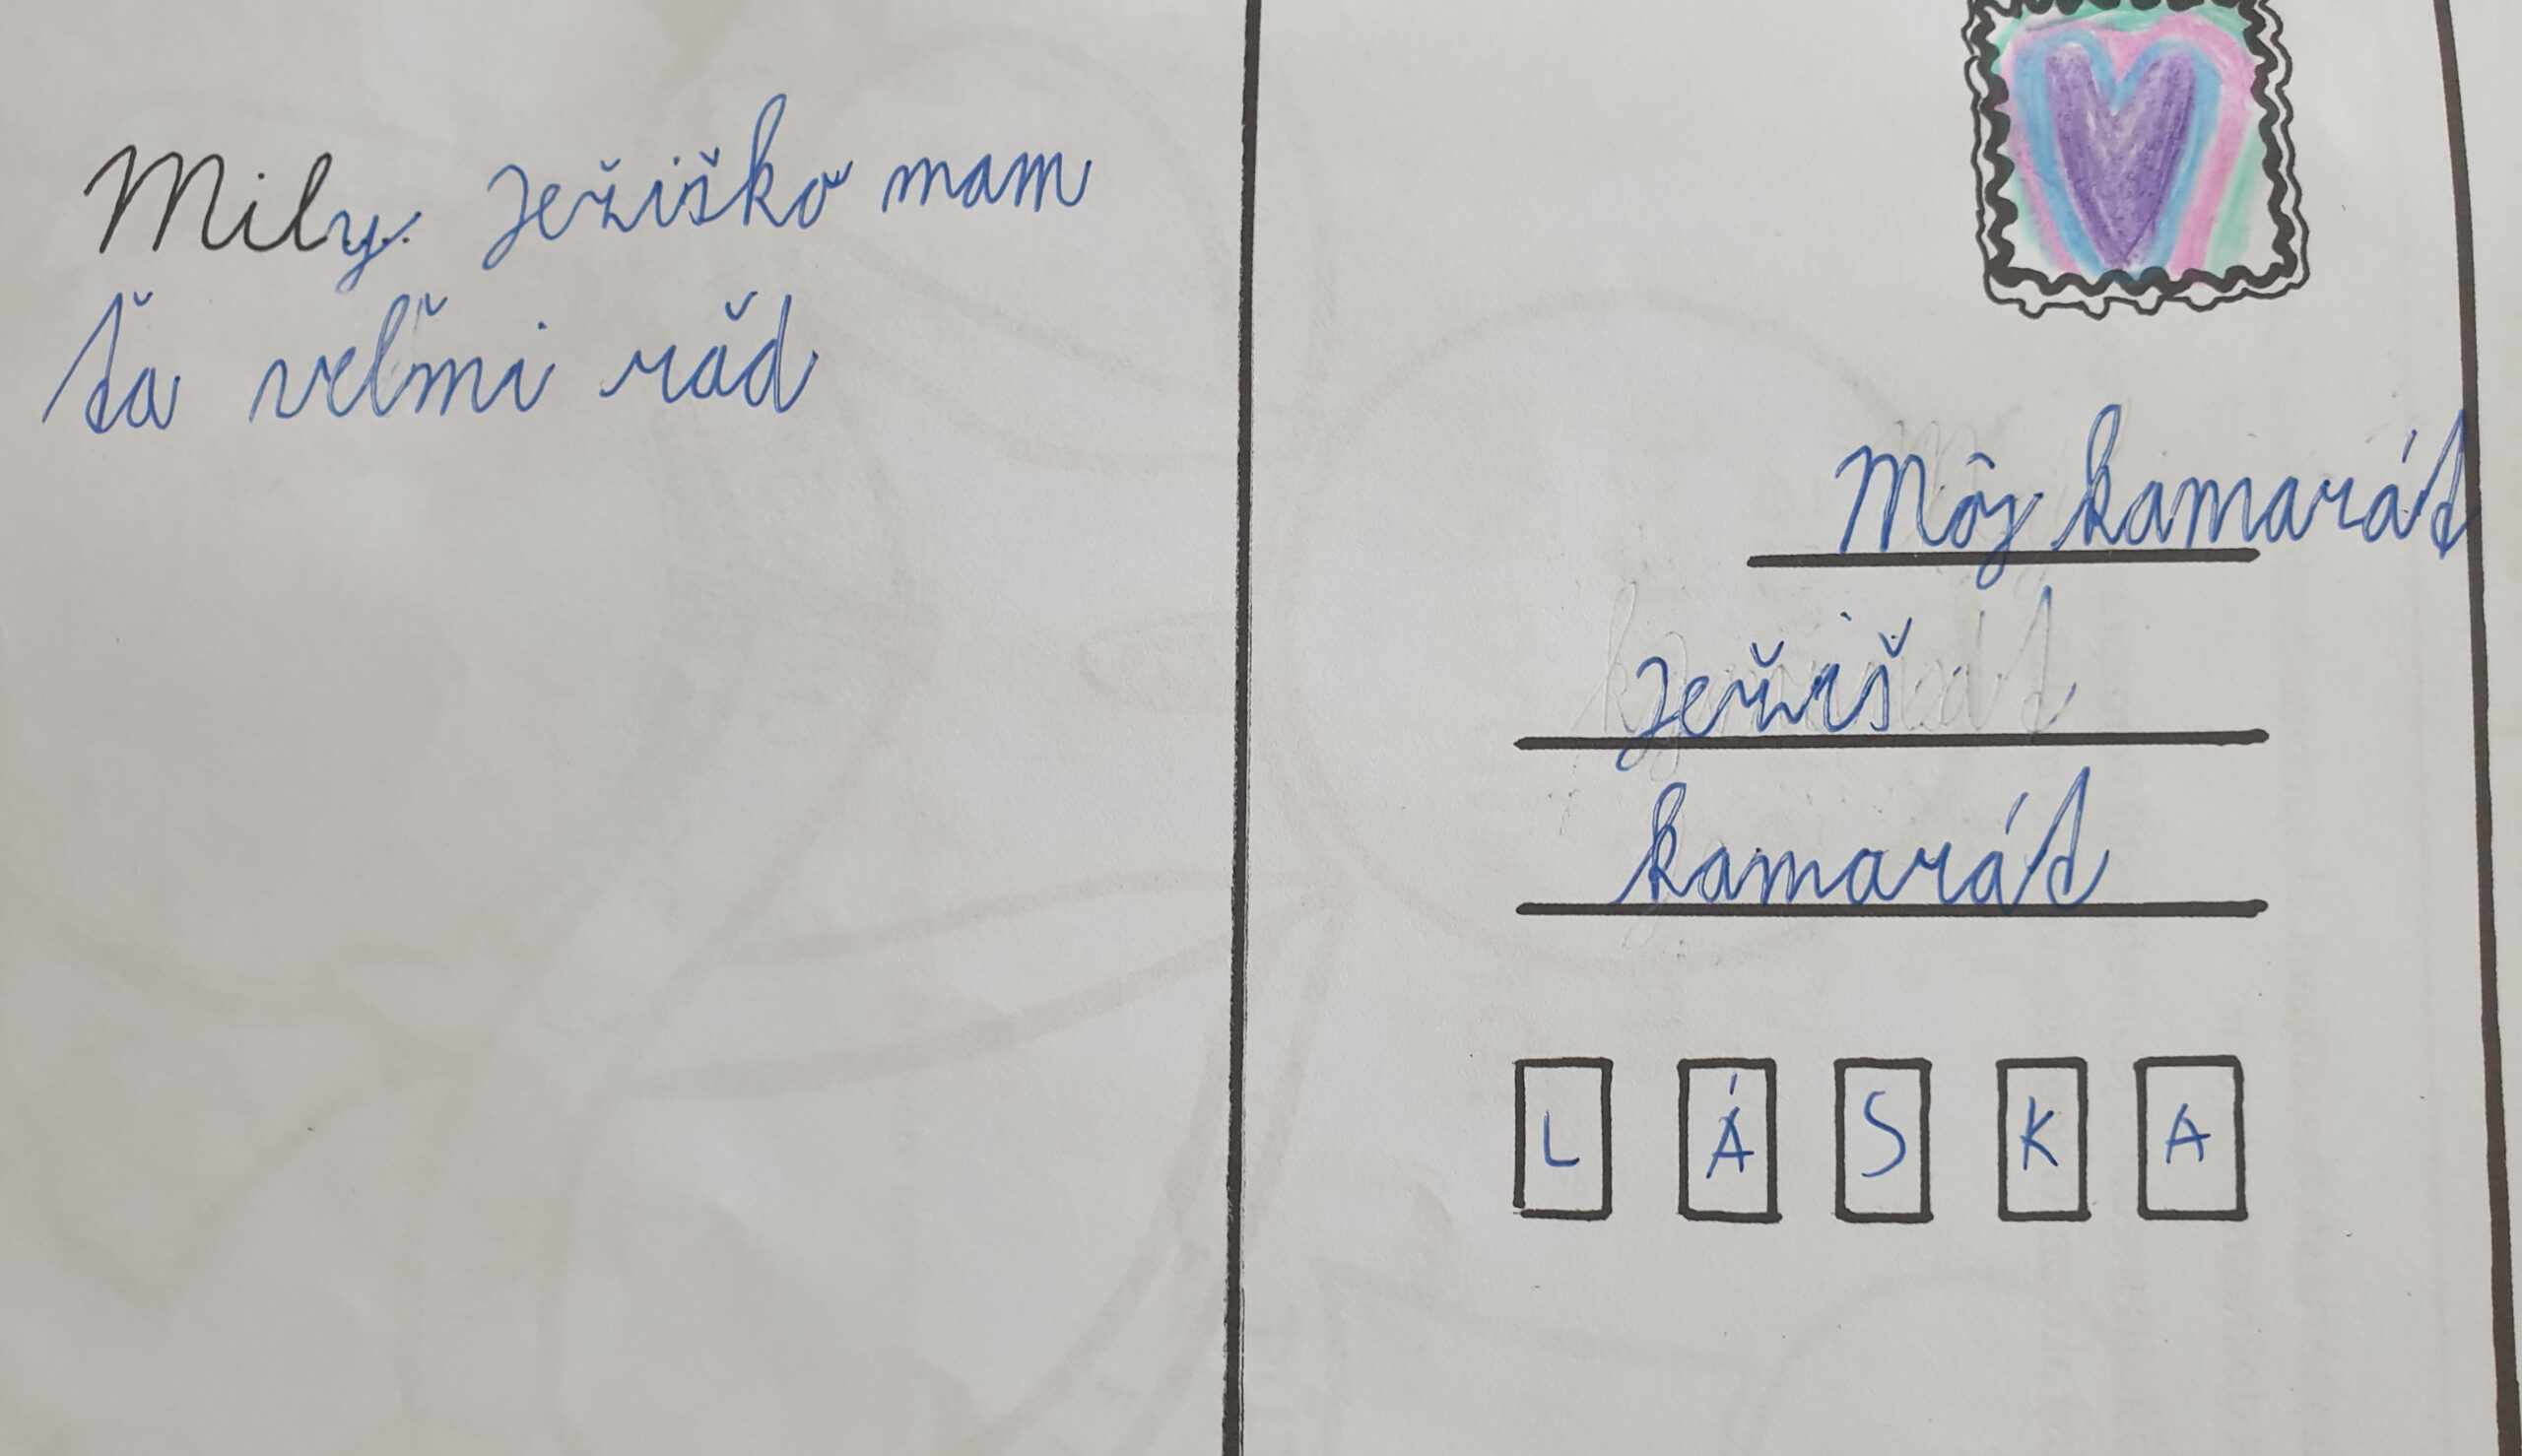 Mily Ježiško mam
ťa veľmi rǎd
Môj kamarát
Ježiš
kamarát
L Á S K A